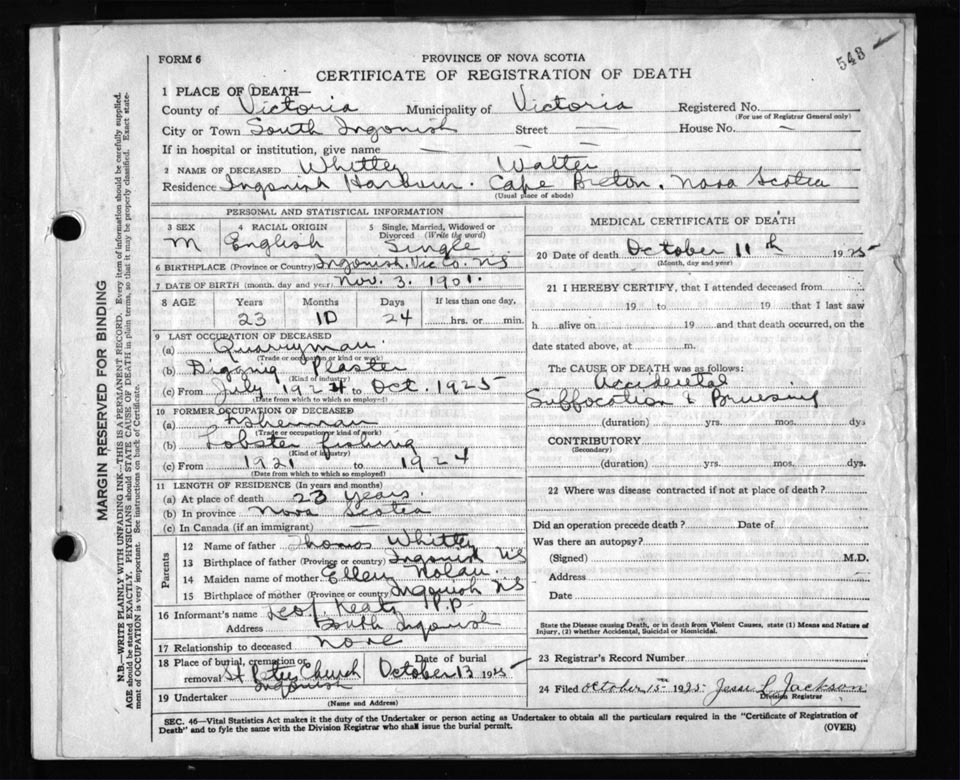 548
FORM 6
PROVINCE OF NOVA SCOTIA
CERTIFICATE OF REGISTRATION OF DEATH
1 PLACE OF DEATH—
County of Victoria Municipality of Victoria Registered No.
(For use of Registrar General only)
City or Town South Ingonish Street — House No. —
If in hospital or institution, give name —
2 NAME OF DECEASED Whitty Walter
Residence Ingonish Harbour. Cape Breton. Nova Scotia
(Usual place of abode)
PERSONAL AND STATISTICAL INFORMATION
3 SEX M
4 RACIAL ORIGIN English
5 Single, Married, Widowed or Divorced (Write the word) Single
6 BIRTHPLACE (Province or Country) Ingonish. Vic Co. NS
7 DATE OF BIRTH (month, day and year) Nov. 3. 1901.
8 AGE Years Months Days If less than one day,
23 10 24 hrs. or min.
9 LAST OCCUPATION OF DECEASED
(a) Quarryman.
(Trade or occupation or kind of work)
(b) Digging Plaster
(Kind of industry)
(c) From July 1924 to Oct. 1925
(Date from which to which so employed)
10 FORMER OCCUPATION OF DECEASED
(a) Fisherman
(Trade or occupation or kind of work)
(b) Lobster fishing
(Kind of industry)
(c) From 1921 to 1924
(Date from which to which so employed)
11 LENGTH OF RESIDENCE (In years and months)
(a) At place of death 23 years.
(b) In province Nova Scotia
(c) In Canada (if an immigrant) —
Parents
12 Name of father Thomas Whitty
13 Birthplace of father (Province or country) Ingonish NS
14 Maiden name of mother Ellen Nolan.
15 Birthplace of mother (Province or country) Ingonish NS
16 Informant's name Leo J. Keats P.P.
Address South Ingonish
17 Relationship to deceased None
18 Place of burial, cremation or removal St Peters Church Ingonish
Date of burial October 13 1925
19 Undertaker
(Name and Address)
MEDICAL CERTIFICATE OF DEATH
20 Date of death October 11th 1925
(Month, day and year)
21 I HEREBY CERTIFY, that I attended deceased from
19 to 19 that I last saw
h alive on 19 and that death occurred, on the
date stated above, at m.
The CAUSE OF DEATH was as follows:
Accidental
Suffocation & Bruising
(duration) yrs. mos. dys
CONTRIBUTORY
(Secondary)
(duration) yrs. mos. dys.
22 Where was disease contracted if not at place of death?
Did an operation precede death? Date of
Was there an autopsy?
(Signed) M.D.
Address
Date
State the Disease causing Death, or in death from Violent Causes, state (1) Means and Nature of
Injury, (2) whether Accidental, Suicidal or Homicidal.
23 Registrar's Record Number
24 Filed October 15th 1925 Jesse L Jackson
Division Registrar
SEC. 46—Vital Statistics Act makes it the duty of the Undertaker or person acting as Undertaker to obtain all the particulars required in the "Certificate of Registration of
Death" and to fyle the same with the Division Registrar who shall issue the burial permit.
(OVER)
MARGIN RESERVED FOR BINDING
N.B.—WRITE PLAINLY WITH UNFADING INK—THIS IS A PERMANENT RECORD. Every item of information should be carefully supplied.
AGE should be stated EXACTLY. PHYSICIANS should STATE CAUSE OF DEATH in plain terms, so that it may be properly classified. Exact statement
of OCCUPATION is very important. See instructions on back of Certificate.